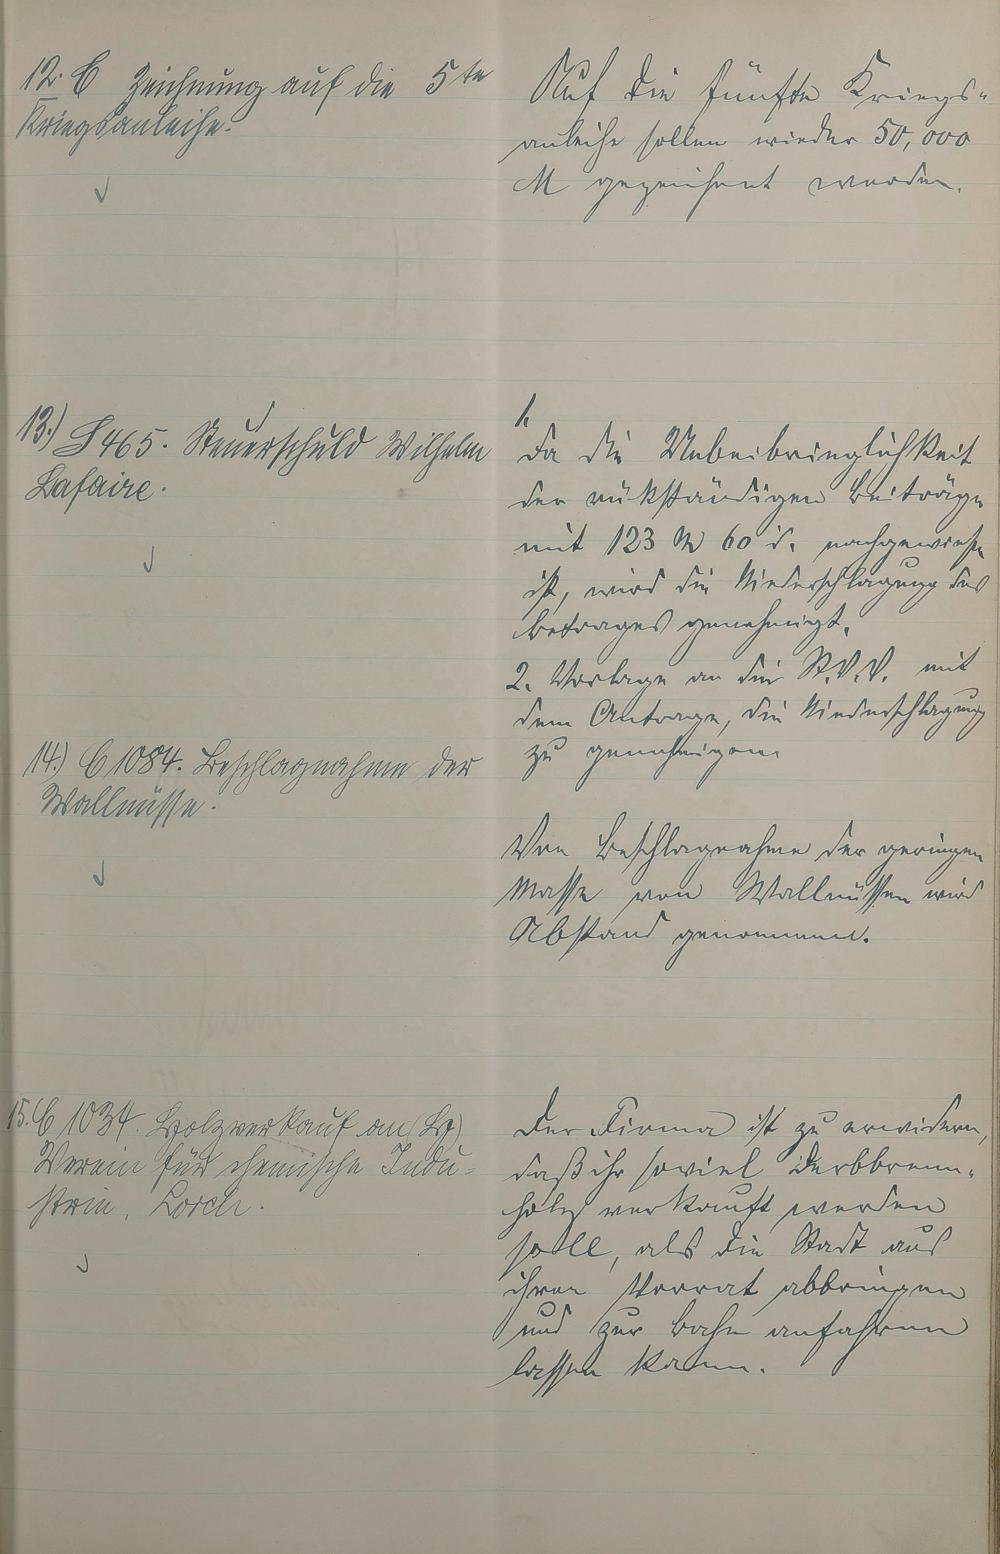 12. C Zeichnung auf die 5te
Kriegsanleihe.
Auf die fünfte Kriegs-
anleihe sollen wieder 50,000
M gezeichnet werden.
13.) S 465. Steuerschuld Wilhelm
Lafaire.
1.
Da die Uebeibringlichkeit
der rükständigen Beiträge
mit 123 M 60 d. nachgewiesen
ist, wird die Niederschlagung des
Betrages genehmigt.
2. Vorlage an die St.V.V. mit
dem Antrage, die Niederschlagung
zu genehmigen.
14.) C 1084. Beschlagnahme der
Wallnüsse.
Von Beschlagnahme der geringen
Masse von Wallnüssen wird
Abstand genommen.
15. C 1034. Holzverkauf an
Verein für chemische Indu-
strie, Lorch.
Der Firma ist zu erwidern,
daß ihr soviel Derbbrenn-
holz verkauft werden
soll, als die Stadt aus
ihren Vorrat abbringen
und zur Bahn anfahren
lassen kann.